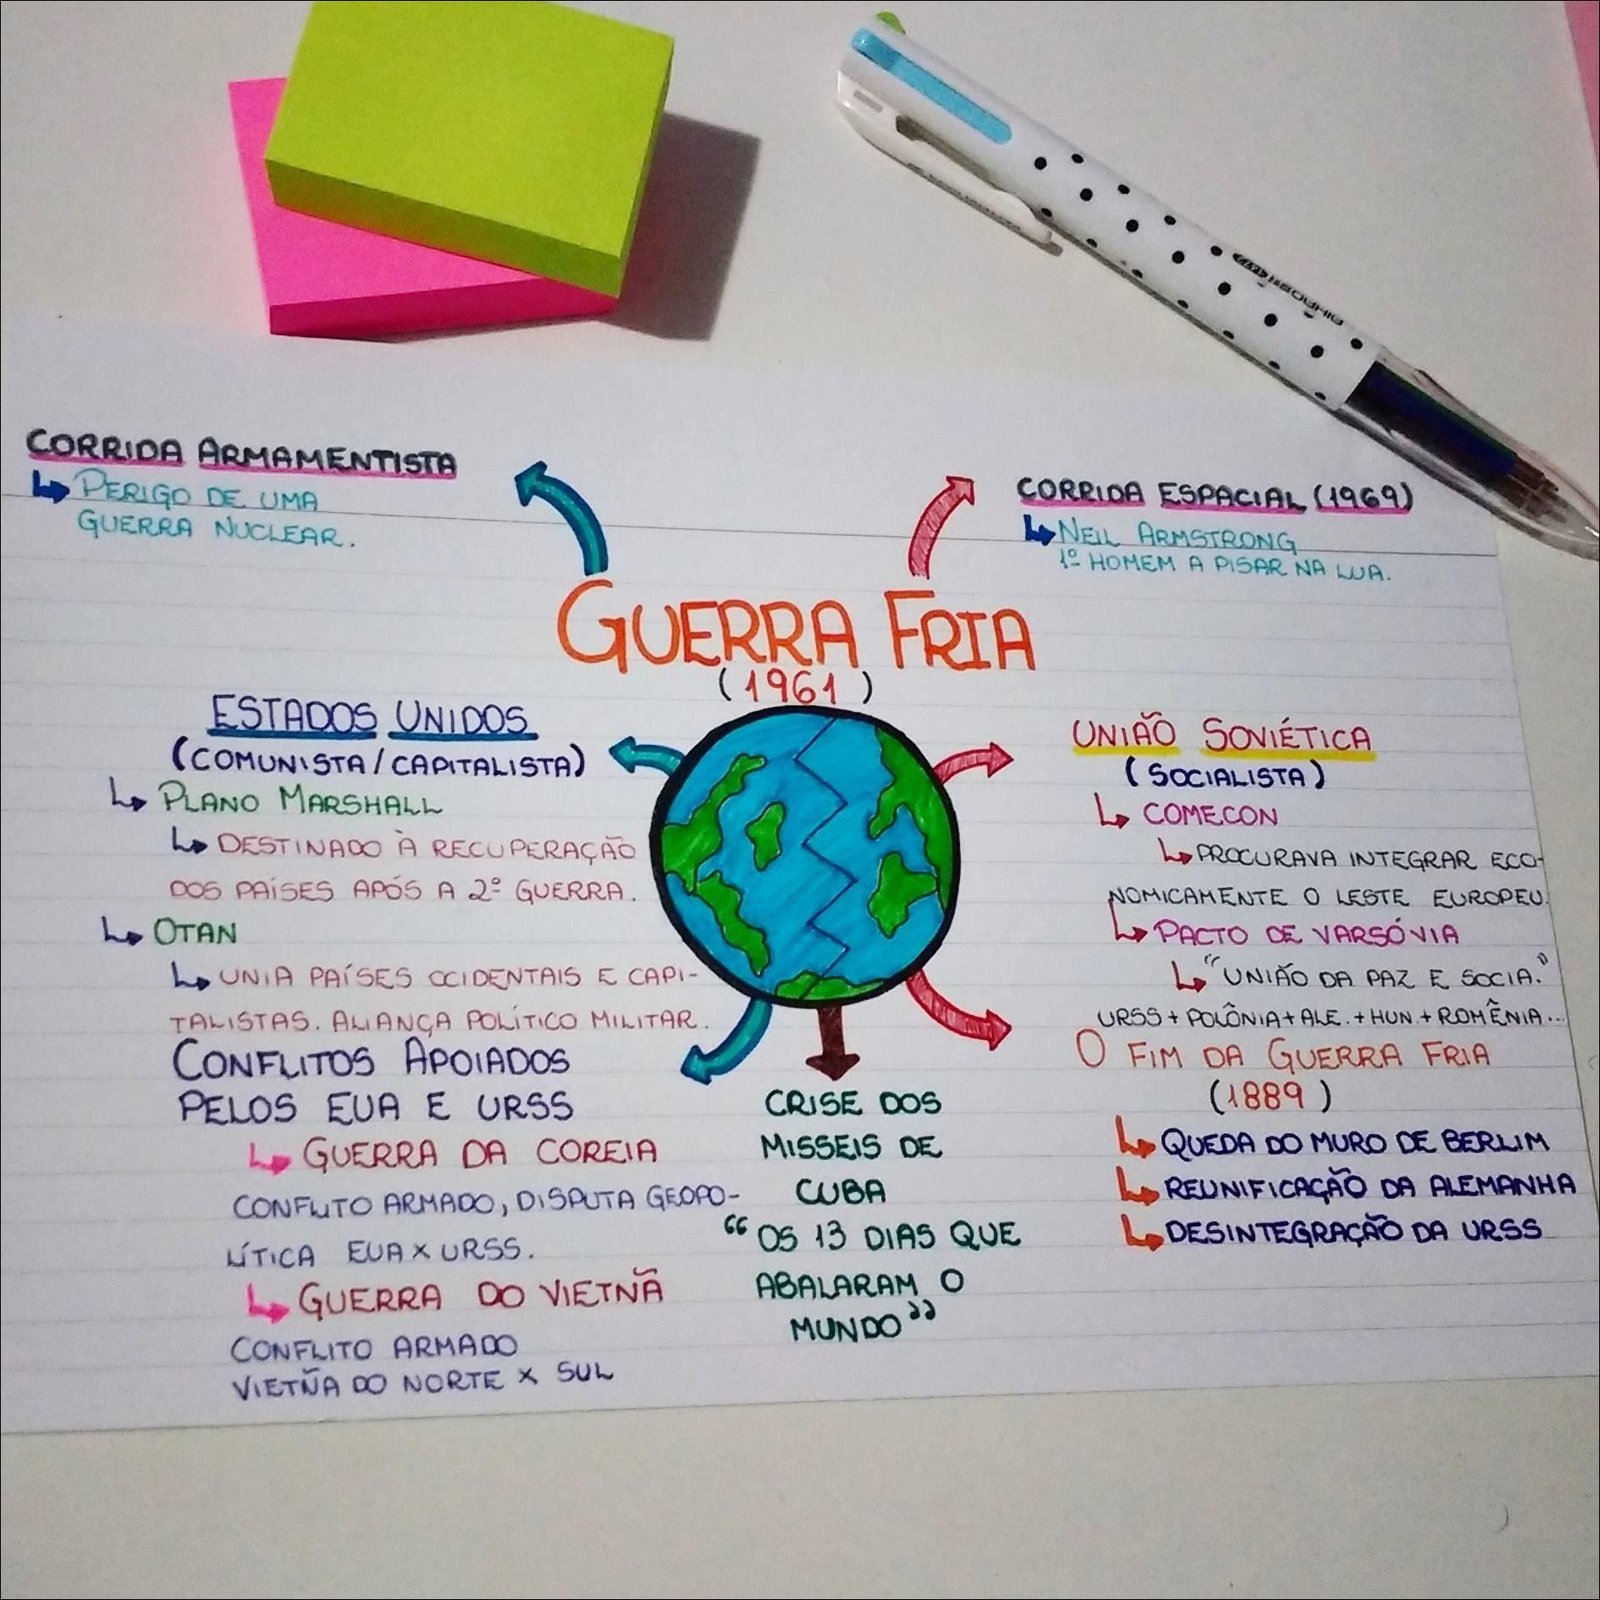 CORRIDA ARMAMENTISTA
PERIGO DE UMA
GUERRA NUCLEAR.
CORRIDA ESPACIAL (1969)
NEIL ARMSTRONG
1º HOMEM A PISAR NA LUA.
GUERRA FRIA
(1961)
ESTADOS UNIDOS
(COMUNISTA/CAPITALISTA)
PLANO MARSHALL
DESTINADO À RECUPERAÇÃO
DOS PAÍSES APÓS A 2º GUERRA.
OTAN
UNIA PAÍSES OCIDENTAIS E CAPI-
TALISTAS. ALIANÇA POLÍTICO MILITAR.
CONFLITOS APOIADOS
PELOS EUA E URSS
GUERRA DA COREIA
CONFLITO ARMADO, DISPUTA GEOPO-
LÍTICA EUA X URSS.
GUERRA DO VIETNÃ
CONFLITO ARMADO
VIETÑA DO NORTE X SUL
CRISE DOS
MISSEIS DE
CUBA
“OS 13 DIAS QUE
ABALARAM O
MUNDO”
UNIÃO SOVIÉTICA
(SOCIALISTA)
COMECON
PROCURAVA INTEGRAR ECO-
NOMICAMENTE O LESTE EUROPEU.
PACTO DE VARSÓVIA
“UNIÃO DA PAZ E SOCIA.”
URSS + POLÔNIA + ALE. + HUN. + ROMÊNIA...
O FIM DA GUERRA FRIA
(1889)
QUEDA DO MURO DE BERLIM
REUNIFICAÇÃO DA ALEMANHA
DESINTEGRAÇÃO DA URSS